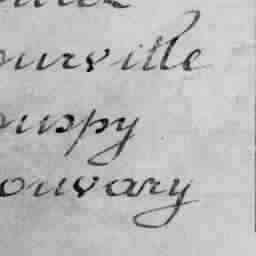 ourville
ouspy
ouvary